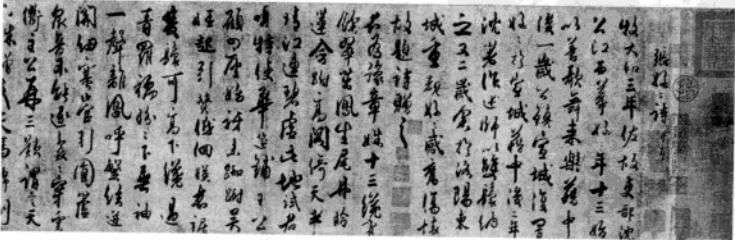 張好好詩
牧大和三年佐故吏部沈
公江西幕好好年十三始
以善歌舞來樂籍中
後一歲公鎮宣城復置
好好於宣城籍中後二年
沈著作述師以雙鬟納
之又二歲余於洛陽東
城重覩好好感舊傷懷
故題詩贈之
君為豫章姝十三纔有
餘翠茁鳳生尾丹臉
蓮含跗高閣倚天半
江連碧虛此地試君
唱特使華筵鋪主公
顧四座始訝來踟躕吳
娃起引贊低佪暎長裾
雙鬟可高下纔過
青羅襦盼盼下垂袖
一聲離鳳呼繁絃迸
關紐塞管引圓蘆
衆音不能逐裊裊穿雲
衢主公再三歎謂言天
下殊贈之天馬錦副